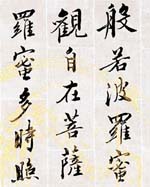 般若波羅蜜
觀自在菩薩
羅蜜多時照